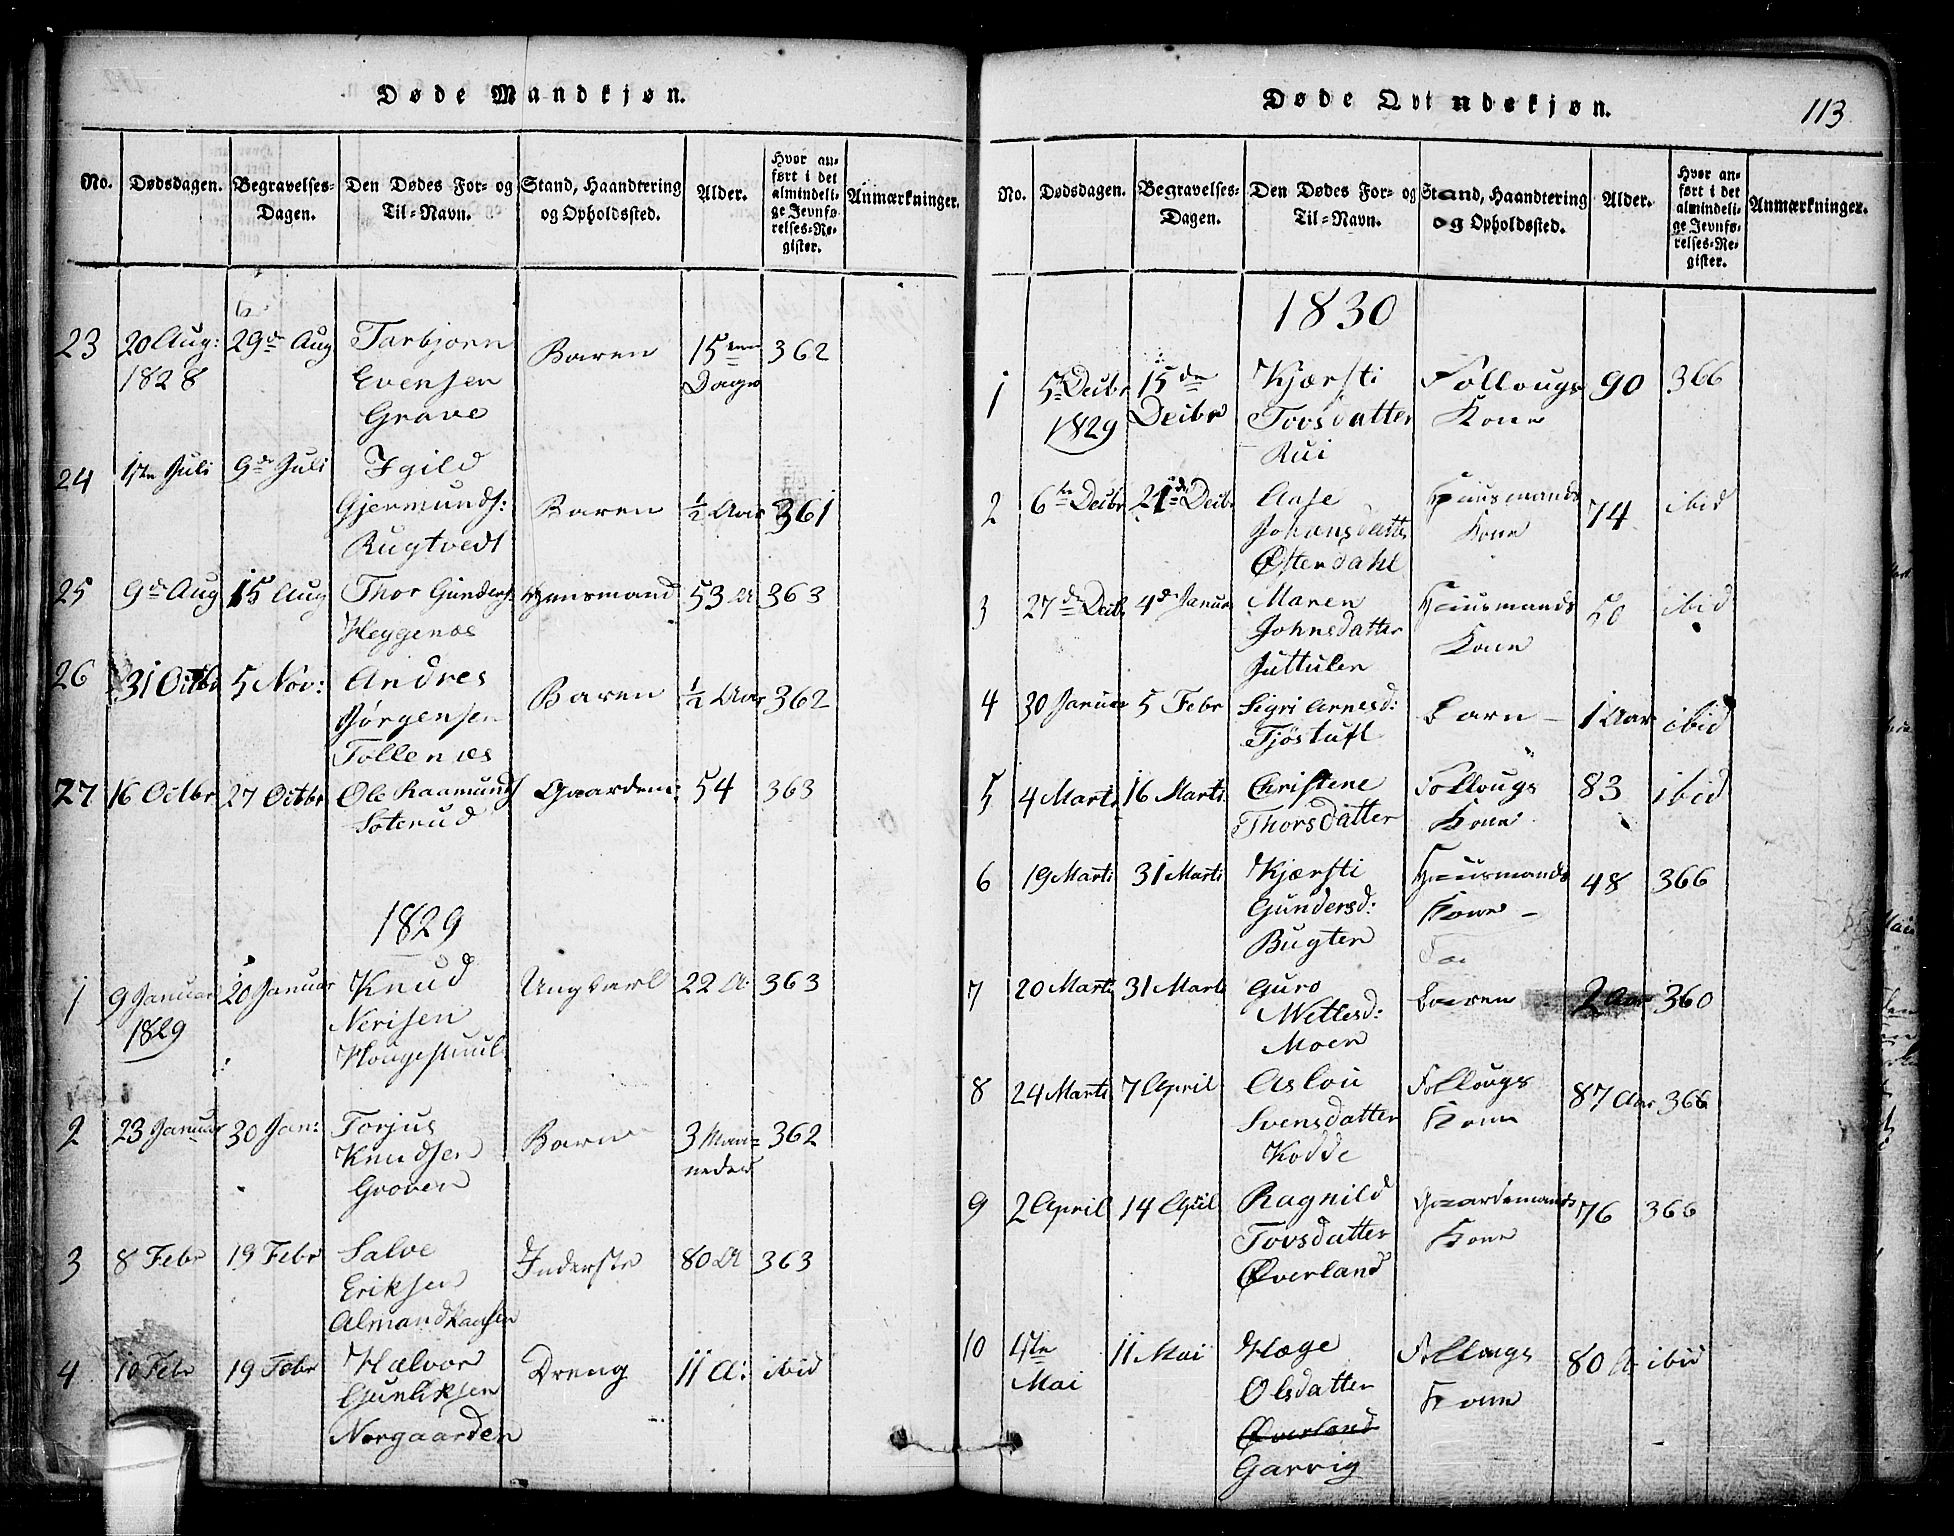 Døde Mandkjøn.
No. Dødsdagen. Begravelses-Dagen. Den Dødes For- og Til-Navn. Stand, Haandtering og Opholdssted. Alder. Hvor anført i det almindelige Jevnførelses-Register. Anmærkninger.
23 20 Aug: 29de Aug Torbjørn Baren 15ten 362
1828 Evensen Dage
Grave
24 1ste Juli 9de Juli Igild
Gjermunds: Baren ½ Aar 361
Rugtvedt
25 9de Aug 15 Aug Thor Gunders: Huusmand 53 A 363
Heggenæs
26 31 Octbr 5 Nov: Andres Baren ½ Aar 362
Jørgensen
Tollenæs
27 16 Octbr 27 Octbr Ole Raamunds Gaardem: 54 363
Soterud
1829
1 9 Januar 20 Januar Knud Ungkarl 22 A 363
1829 Nerisen
Hougestuul
2 23 Januar 30 Jan: Torjus Barn 3 Maa- 362
Knudsen neder
Groven
3 8 Febr 19 Febr Salve Inderste 80 A 363
Eriksen
4 10 Febr 19 Febr Halvor Dreng 11 A: ibid
Gunliksen
Norgaarden
Døde Qvindekjøn. 113
No. Dødsdagen. Begravelses-Dagen. Den Dødes For- og Til-Navn. Stand, Haandtering og Opholdssted. Alder. Hvor anført i det almindelige Jevnførelses-Register. Anmærkninger.
1830
1 5 Decbr 15de Kjærsti Follougs 90 366
1829 Decbr Tovsdatter Kone
Rui
2 6te Decbr 21de Decbr Aase Huusmands 74 ibid
Johansdatter Kone
Østerdahl
3 27de Decbr 4de Januar Maren Huusmands 50 ibid
Johnsdatter Kone
Juttulen
4 30 Januar 5 Febr Sigri Arnesd: Barn - 1 Aar ibid
Tjöstufl
5 4 Marti 16 Marti Christene Follougs 83 ibid
Thorsdatter Kone
6 19 Marti 31 Marti Kjærsti Huusmands 48 366
Gundersd: Kone -
Bugten
7 20 Marti 31 Marti Guro Baren 2 Aar 360
Mettesd:
Moen
8 24 Marti 7 April Aslou Follougs 87 Aar 366
Svensdatter Kone
Kodde
9 2 April 14 April Ragnild Gaardemands 76 366
Tovsdatter Kone
Øverland
10 4de 11 Mai Hæge Follougs 80 A ibid
Mai Olsdatter Kone
Øverland
Garvig